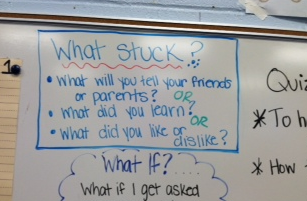 1
What Stuck?
• What will you tell your friends
or parents? OR
• What did you learn? OR
• What did you like or
dislike?
What If? ....
What if I get asked
Quiz
* To h
* How